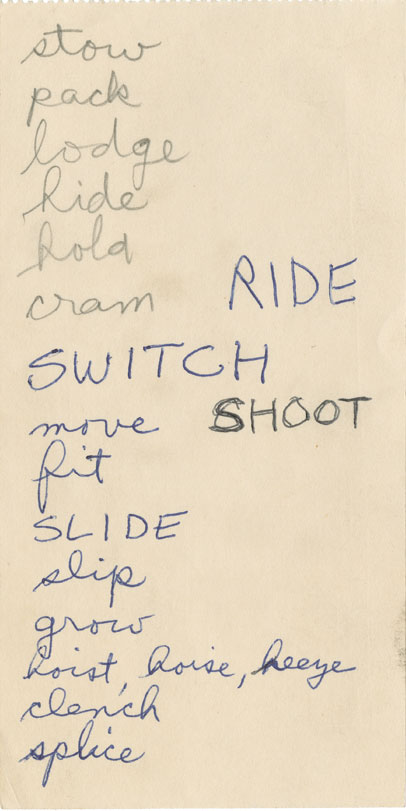 stow
pack
lodge
hide
hold
cram RIDE
SWITCH
move SHOOT
fit
SLIDE
slip
grow
hoist, hoise, heeze
clench
splice